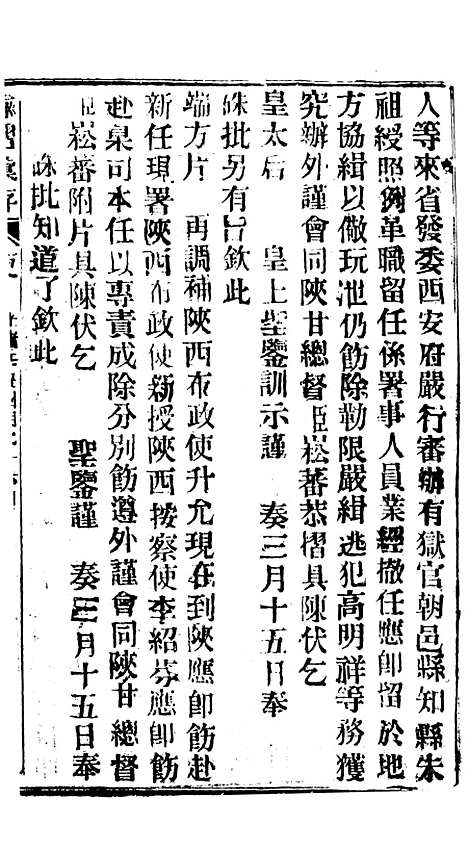 人等來省發委西安府嚴行審辦有獄官朝邑縣知縣朱
祖綬照例革職留任係署事人員業經撤任應卽留於地
方協緝以儆玩泄仍飭除勒限嚴緝逃犯高明祥等務獲
究辦外謹會同陝甘總督臣崧蕃恭摺具陳伏乞
皇太后 皇上聖鑒訓示謹 奏三月十五日奉
硃批另有旨欽此
端方片 再調補陝西布政使升允現在到陝應卽飭赴
新任現署陝西布政使新授陝西按察使李紹芬應卽飭
赴臬司本任以專責成除分別飭遵外謹會同陝甘總督
臣崧蕃附片具陳伏乞 聖鑒謹 奏三月十五日奉
硃批知道了欽此